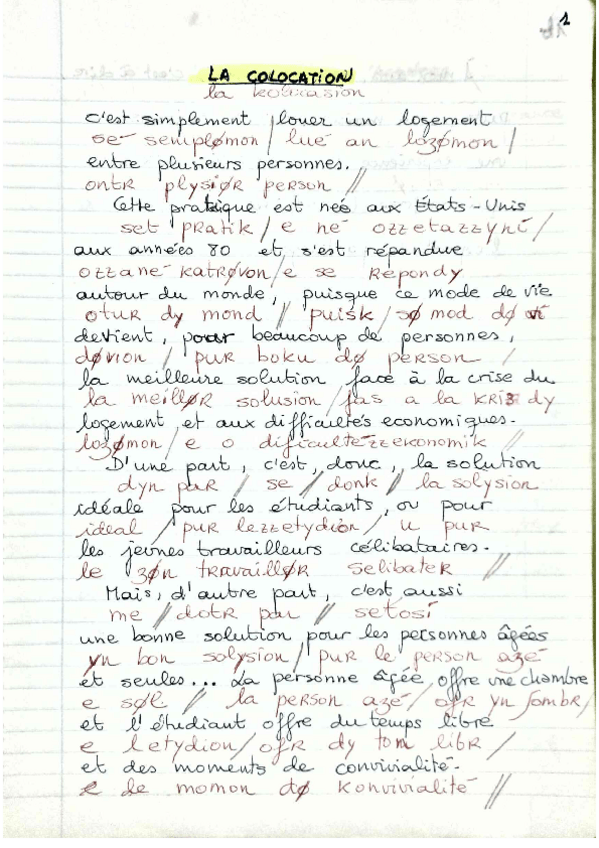 1
LA COLOCATION
la kolokasion
c'est simplement louer un logement
se semplømon / lué an lozømon /
entre plusieurs personnes.
ontr plysiør person //
Cette pratique est neé aux États-Unis
set pratik / e né ozzetazzyni /
aux années 80 et s'est répandue
ozzané katrøvon / e se répondy
autour du monde, puisque ce mode de vie
otur dy mond // puisk / sø mod dø vi
devient, pour beaucoup de personnes,
døvion / pur boku dø person
la meilleure solution face à la crise du
la meillør solusion / fas a la kriz dy
logement et aux difficultés economiques.
lozømon / e o dificultezzekonomik //
D'une part, c'est, donc, la solution
dyn par // se / donk // la solysion
idéale pour les étudiants, ou pour
ideal / pur lezzetydion / u pur
les jeunes travailleurs célibataires.
le zøn travaillør selibater //
Mais, d'autre part, c'est aussi
me // dotr par // setosi
une bonne solution pour les personnes âgées
yn bon solysion / pur le person azé
et seules... La personne âgée offre une chambre
e søl // la person azé / ofr yn ʃombr /
et l'étudiant offre du temps libre
e letydion / ofr dy tom libr /
et des moments de convivialité.
e de momon dø konvivialité //